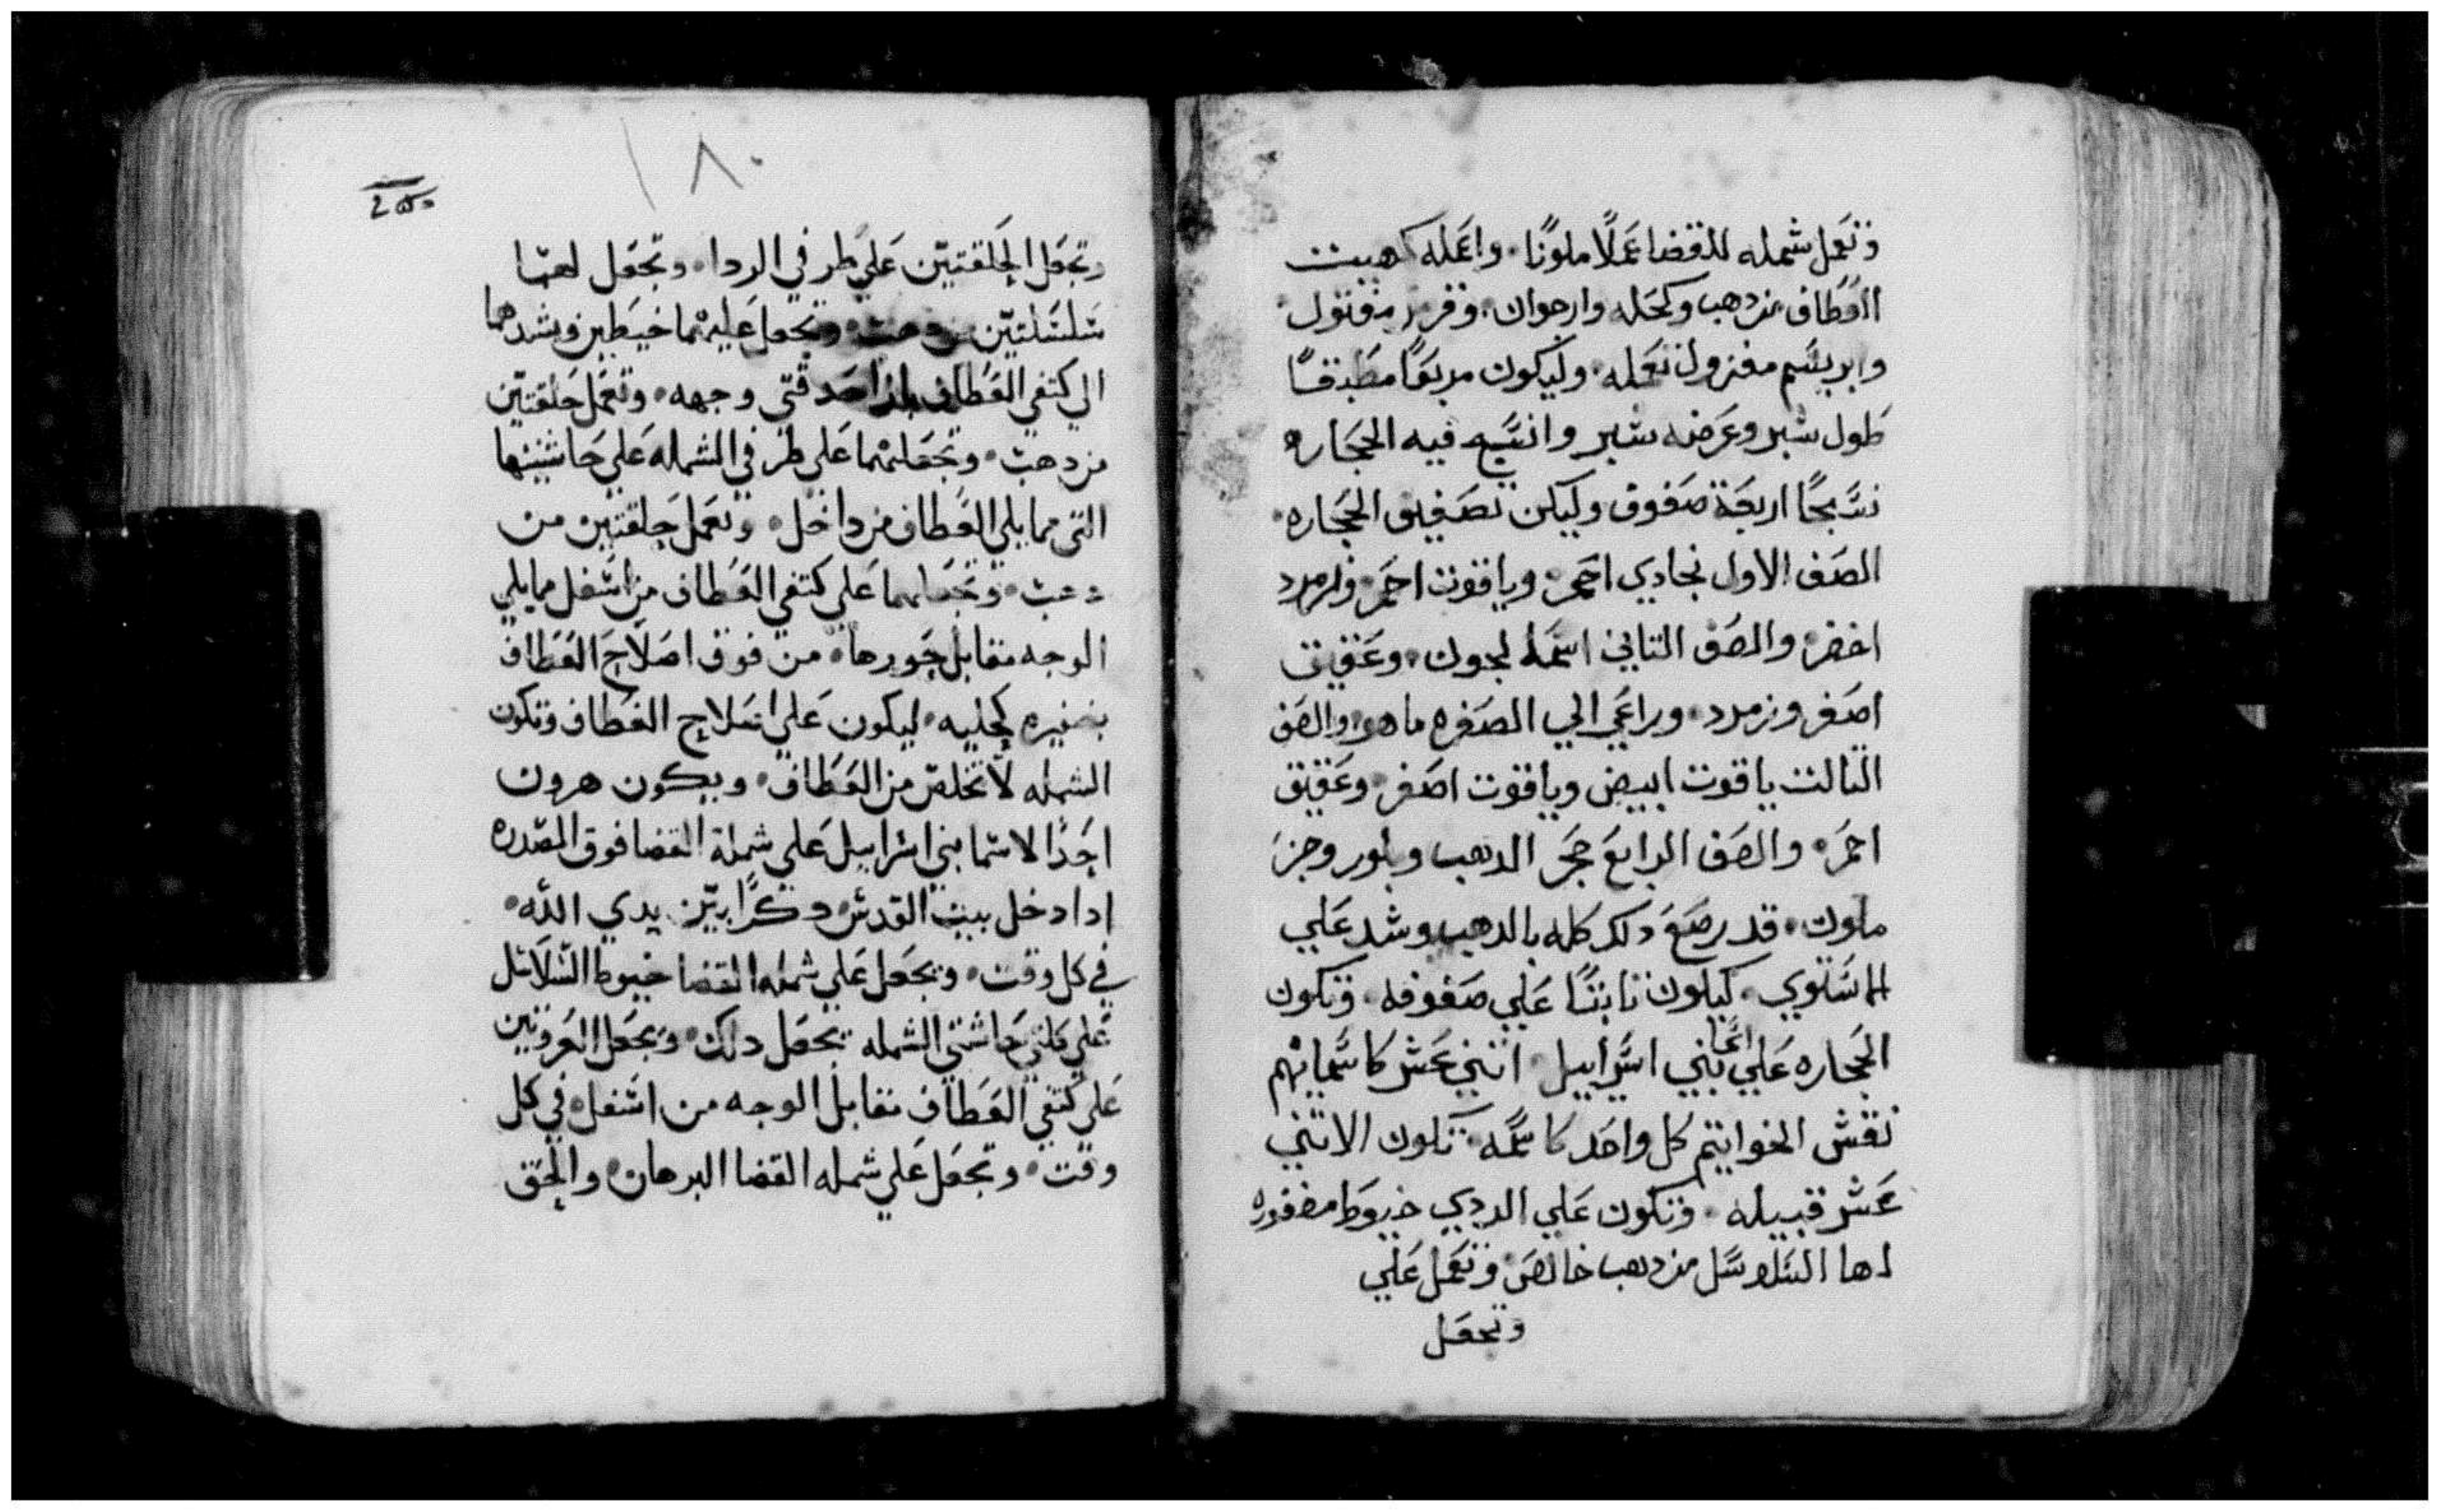 وتعمل شمله للقضا عملًا ملونًا. واعمله كهيئت
الغطاف من دهب وكحله وارجوان. وقرمز مفتول.
وابريسم مغزول تعمله. وليكون مربعًا مطبقًا
طول شبر وعرضه شبر وانسج فيه الحجاره
نسجًا اربعة صفوف وليكن تصفيف الحجاره.
الصف الاول نجادي احمر. وياقوت احمر. وزمرد
اخضر. والصف التاني اسمانجون. وعقيق
اصفر وزمرد. وراعي الي الصفره ما هو. والصف
التالت ياقوت ابيض وياقوت اصفر. وعقيق
احمر. والصف الرابع حجر الدهب وبلور وجزع
ملون. قد رصع دلك كله بالدهب وشد علي
المستوي. ليكون تابتًا علي صفوفه. وتكون
الحجاره علي اسما بني اسراييل. اتني عشر كاسمايهم
نقش الخواتيم كل واحد كاسمه. تكون الاتني
عشر قبيله. وتكون علي الردي خيوط مضفوره
لها السلاسل من دهب خالص. وتعمل علي
وتجعل
١٨٠
وتجعل الحلقتين علي طرفي الردا. وتجعل لهما
سلسلتين من دهب. وتجعل عليهما خيطين وشدهما
الي كتفي الغطاف وجهه. وتعمل حلقتين
من دهب. وتجعلهما علي طرفي الشمله علي حاشيتها
التي مما يلي الغطاف من داخل. وتعمل حلقتين من
دهب. وتجعلهما علي كتفي الغطاف من اسفل مما يلي
الوجه مقابل جورها. من فوق اصلاح الغطاف
بضفيره كحليه. ليكون علي اصلاح الغطاف وتكون
الشمله لا تخلص من الغطاف. ويكون هرون
اجدًا الاسما بني اسراييل علي شملة القضا فوق الصدره
ادا دخل بيت القدس. دكرًا بين يدي الله.
في كل وقت. وتجعل علي شمله القضا خيوط السلاسل
علي كلتي حاشتي الشمله تجعل دلك. وتجعل العروتين
علي كتفي الغطاف مقابل الوجه من اسفل. في كل
وقت. وتجعل علي شمله القضا البرهان. والحق